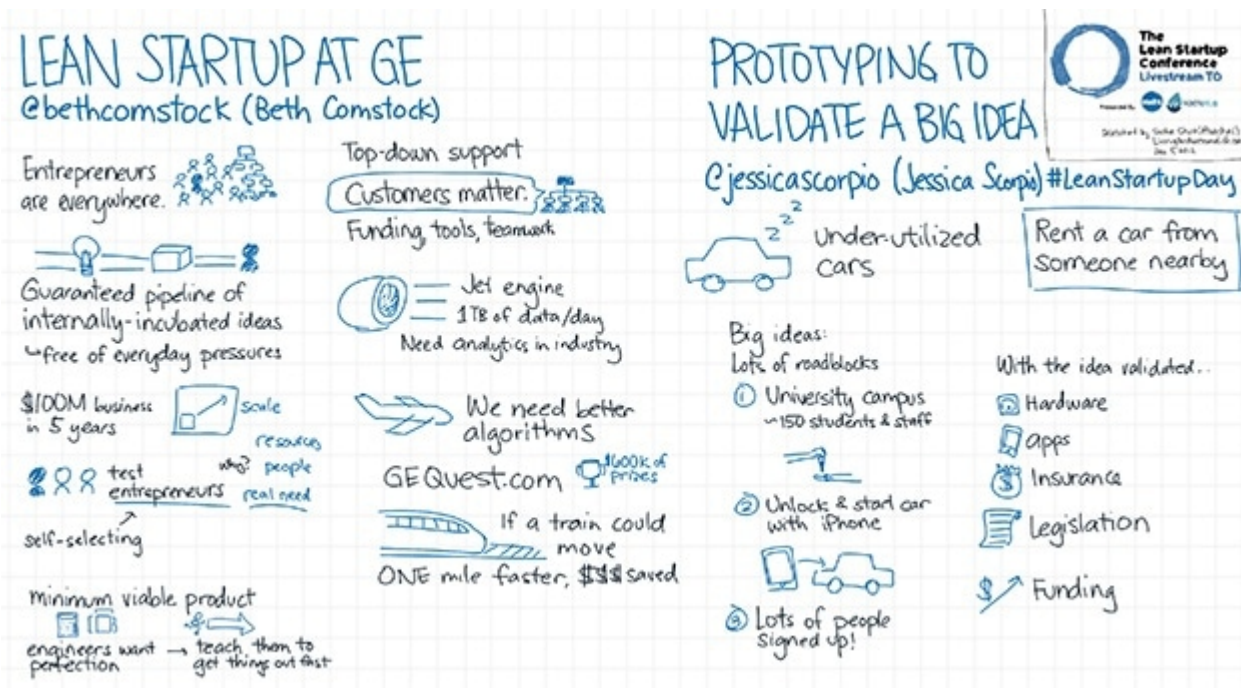 LEAN STARTUP AT GE
@bethcomstock (Beth Comstock)
Entrepreneurs
are everywhere.
Guaranteed pipeline of
internally-incubated ideas
free of everyday pressures
$100M business
in 5 years
scale
resources
who? people
real need
test
entrepreneurs
self-selecting
minimum viable product
engineers want
perfection
→ teach them to
get things out fast
Top-down support
Customers matter.
Funding, tools, teamwork
Jet engine
1TB of data/day
Need analytics in industry
We need better
algorithms
GEQuest.com
$600k of
prizes
If a train could
move
ONE mile faster, $$$ saved
PROTOTYPING TO
VALIDATE A BIG IDEA
@jessicascorpio (Jessica Scorpio) #LeanStartupDay
The
Lean Startup
Conference
Livestream TO
zzz
Under-utilized
cars
Rent a car from
someone nearby
Big ideas:
Lots of roadblocks
① University campus
~150 students & staff
② Unlock & start car
with iPhone
③ Lots of people
signed up!
With the idea validated...
Hardware
apps
$
Insurance
Legislation
$
Funding